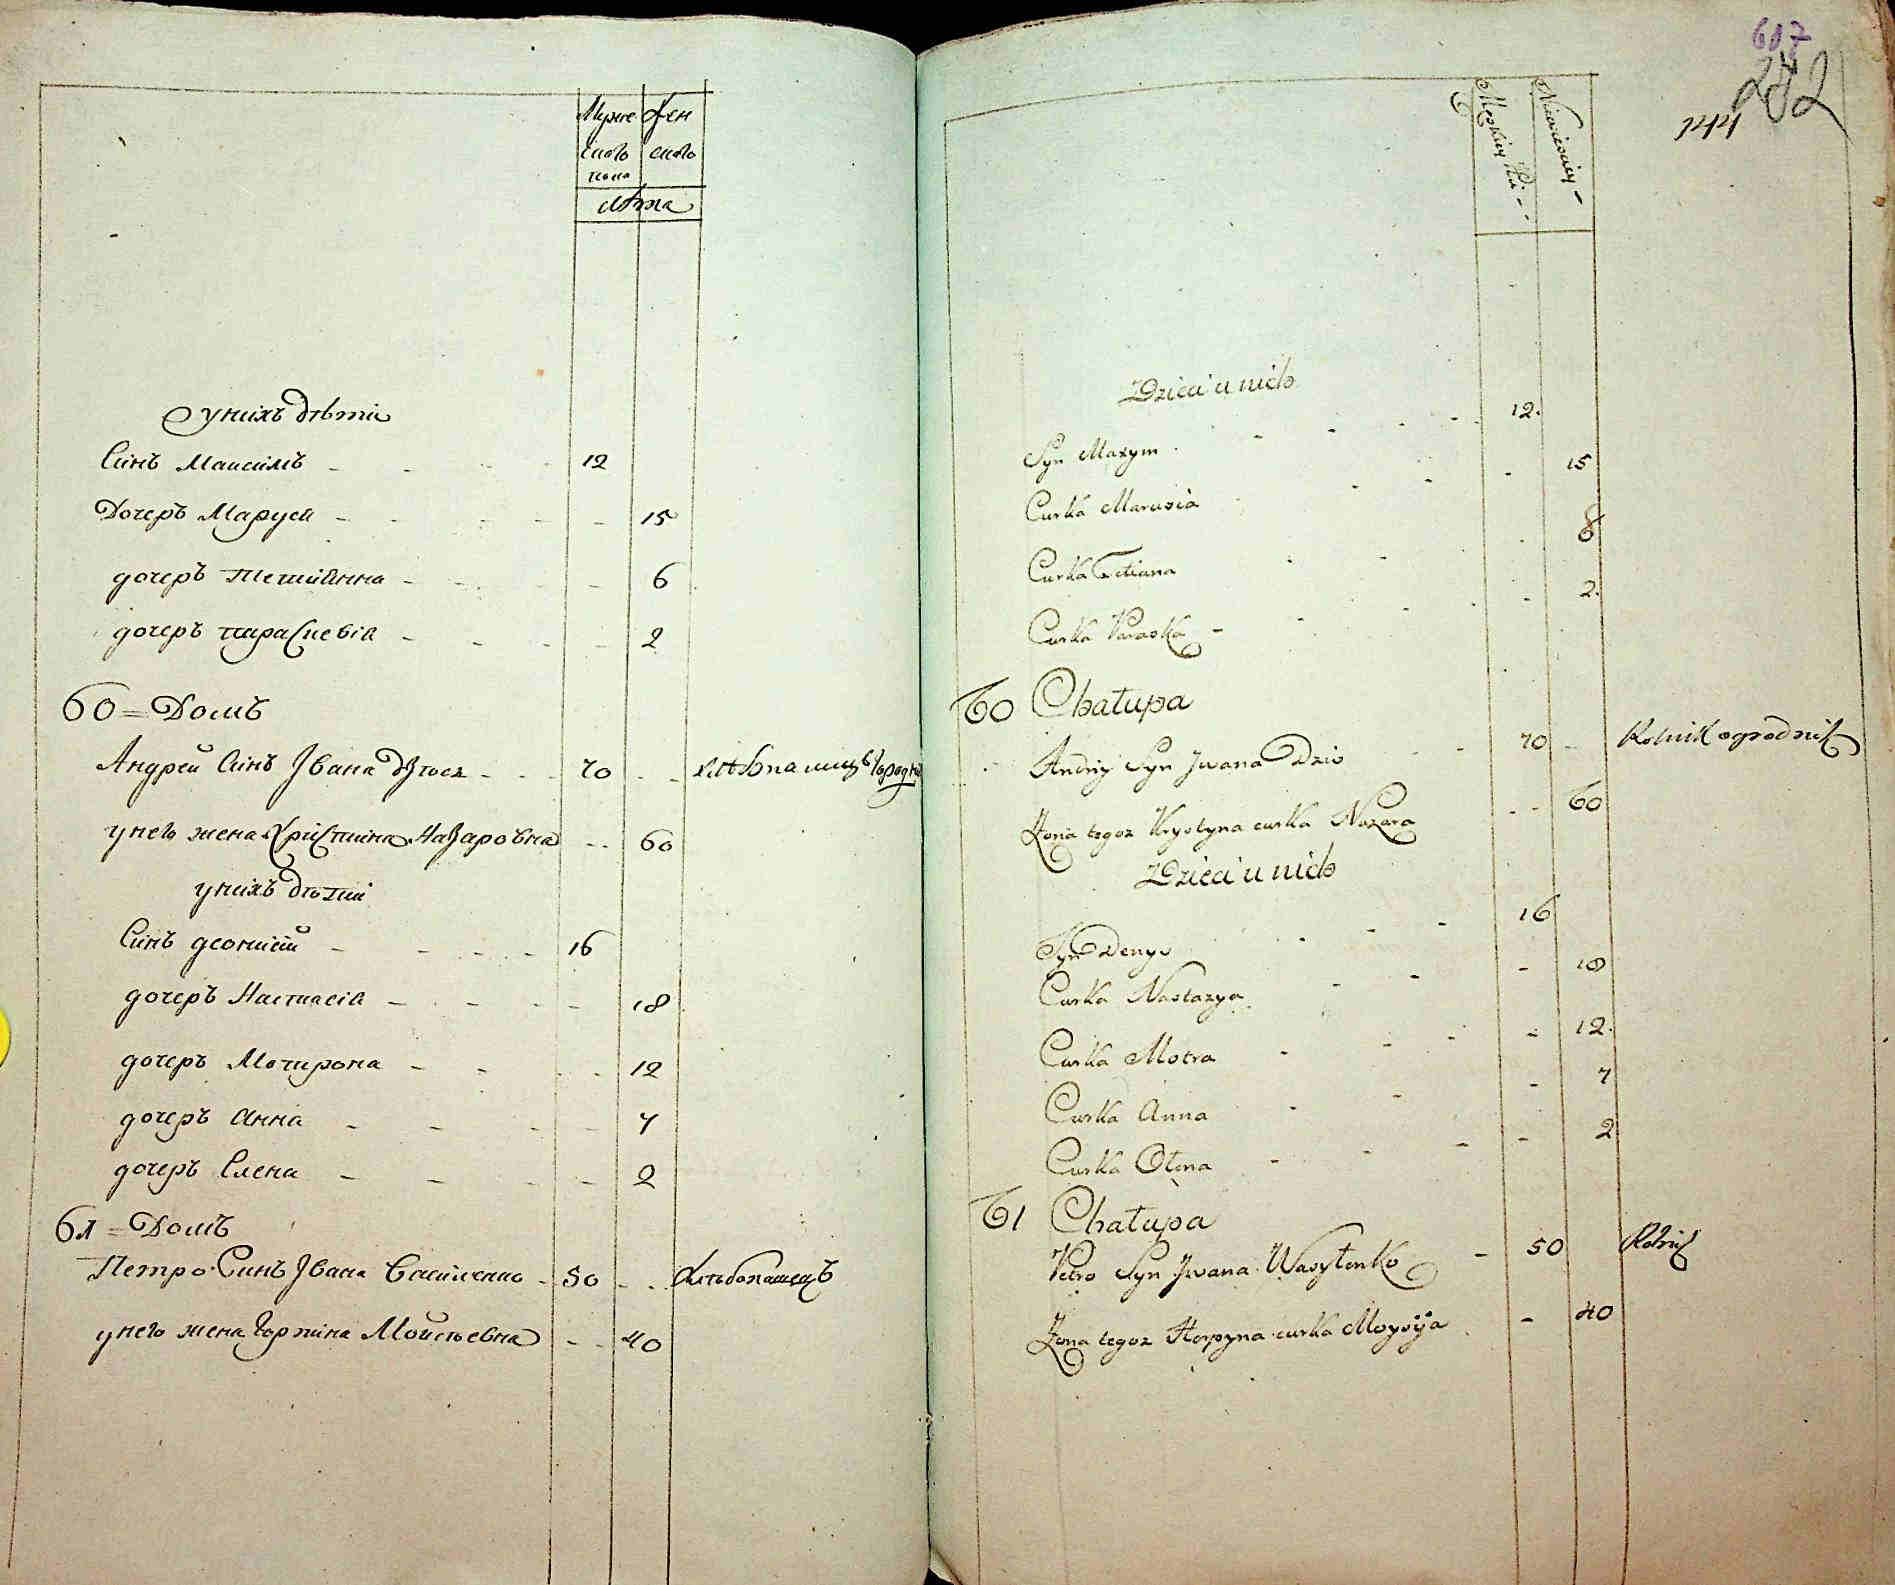 Муже Жен
ского ского
пола
лѣта
у нихъ дѣти
Синъ Максимъ - - - - 12
Дочеръ Маруся - - - - - 15
дочеръ Тетиянна - - - - 6
дочеръ Параскевія - - - - 2
60 = Домъ
Андрей Синъ Івана Дзюсь - - - 70 - - хлѣбопашецъ
у него жена Христина Назаровна - - 60
у нихъ дѣти
Синъ Деонисій - - - - - 16
дочеръ Настасія - - - - - 18
дочеръ Мотирона - - - - 12
дочеръ Анна - - - - 7
дочеръ Елена - - - - 2
61 = Домъ
Петро Синъ Івана Василенко - 50 - - хлѣбопашецъ
у него жена Горпина Мойсѣевна - - 40
617
282
Męskiey
Niewieściey -
Dzieci u nich
Syn Maxym - - - - - 12.
Curka Marusia - - - 15
Curka Tetiana - - - 8
Curka Paraska - - - - 2.
60 Chałupa
Andriy Syn Jwana Dzis - - 70 - Rolnik ogrodnik
Żona tegoż Krystyna curka Nazara - - 60
Dzieci u nich
Syn Denys - - - 16
Curka Nastazya - - - 18
Curka Motra - - - - 12.
Curka Anna - - - 7
Curka Ołena - - - - 2
61 Chałupa
Petro Syn Jwana Wasylenko - 50 Rolnik
Żona tegoż Horpyna curka Moysija - 40